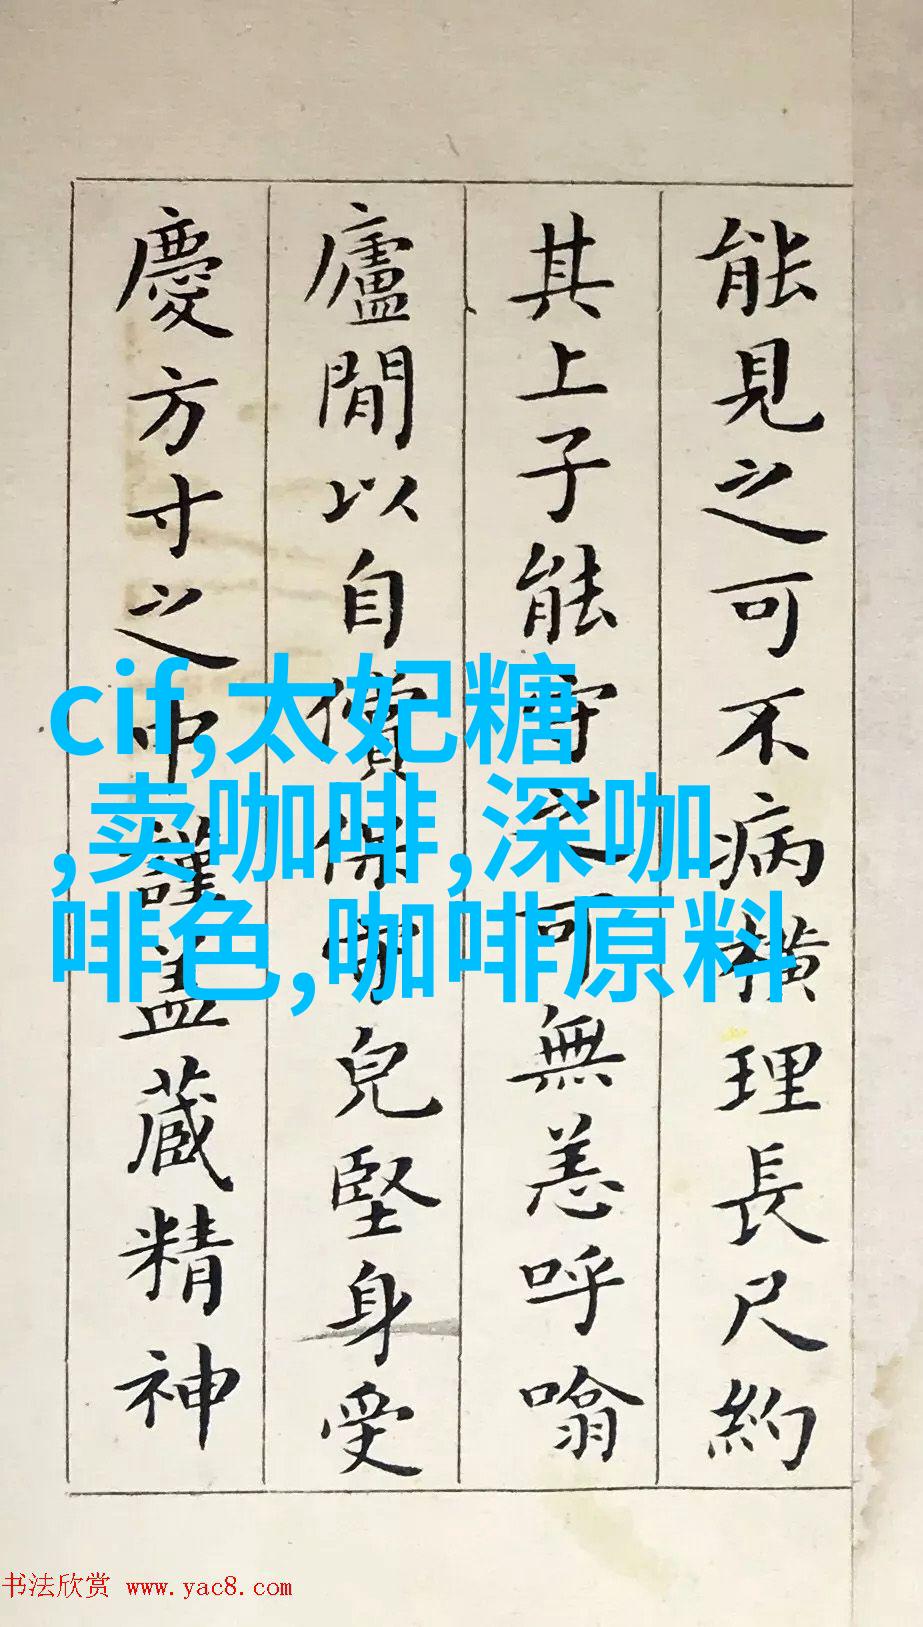 能見之可不病横理長尺約
其上子能守之可無恙呼噏
廬閒以自償保守兒堅身受
慶方寸之中謹盖藏精神
cif,太妃糖
,卖咖啡,深咖
啡色,咖啡原料
书法欣赏 www.yac8.com